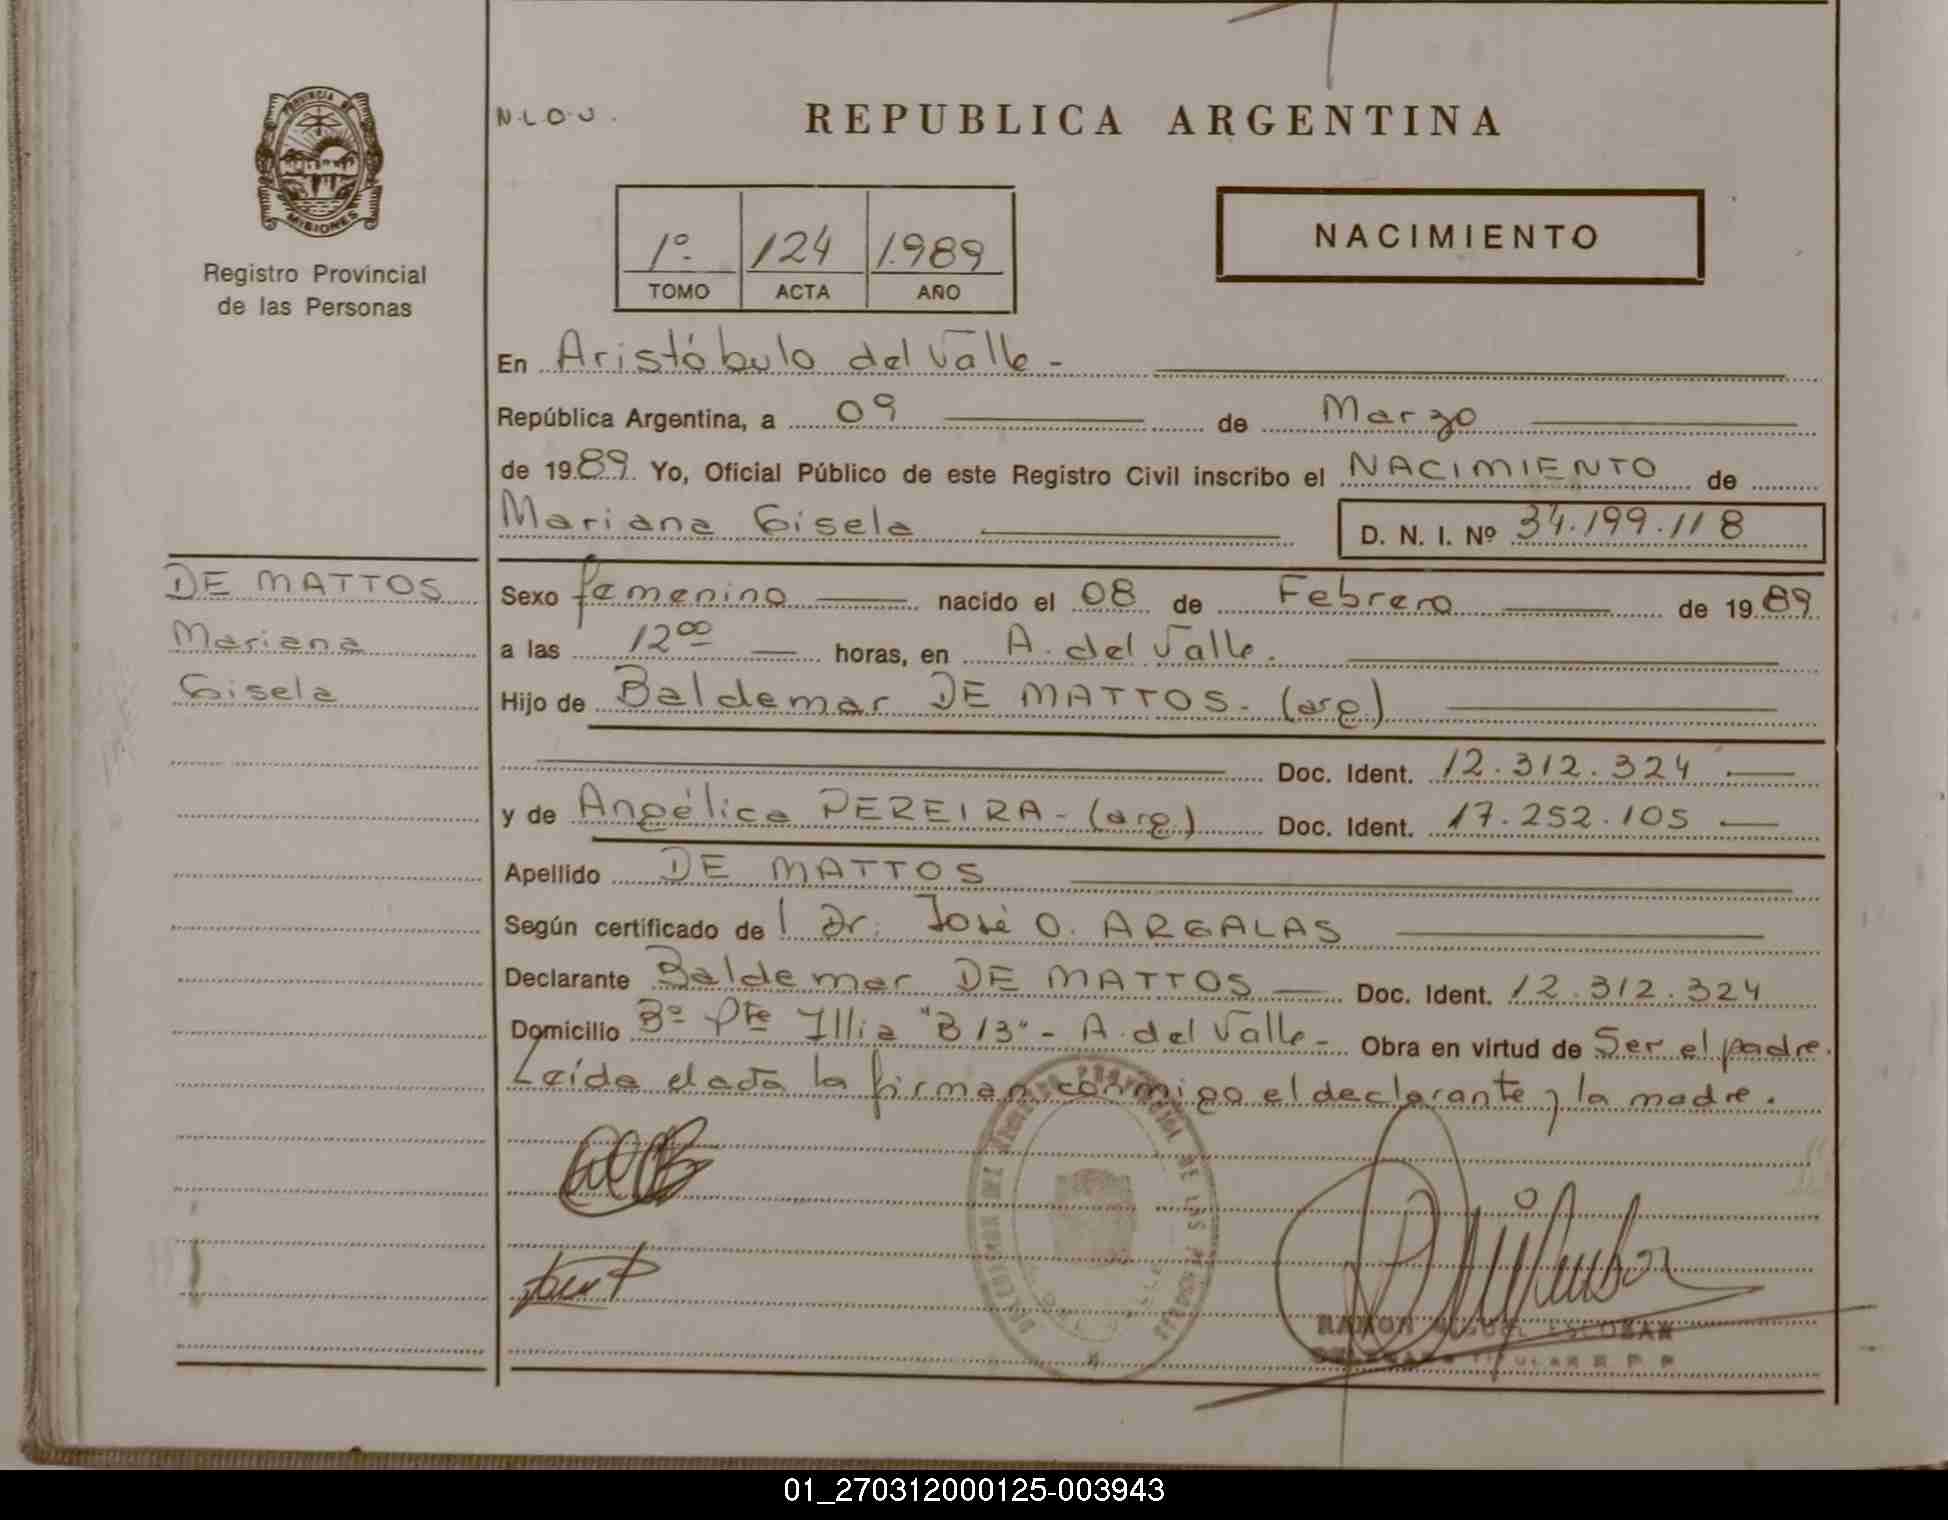 PROVINCIA DE
MISIONES
Registro Provincial
de las Personas
N.L.O.U.
REPUBLICA ARGENTINA
1º 124 1.989
TOMO ACTA AÑO
NACIMIENTO
En Aristóbulo del Valle -
República Argentina, a 09 de Marzo
de 1989. Yo, Oficial Público de este Registro Civil inscribo el NACIMIENTO de
Mariana Gisela D. N. I. Nº 34.199.118
DE MATTOS
Mariana
Gisela
Sexo femenino nacido el 08 de Febrero de 1989
a las 12 00 horas, en A. del Valle.
Hijo de Baldemar DE MATTOS. (arg)
Doc. Ident. 12.312.324
y de Angélica PEREIRA - (arg.) Doc. Ident. 17.252.105
Apellido DE MATTOS
Según certificado de l Dr. José O. ARGALAS
Declarante Baldemar DE MATTOS Doc. Ident. 12.312.324
Domicilio Bº Pte Illia "B 13" - A. del Valle - Obra en virtud de Ser el padre.
Leída el acta la firman conmigo el declarante y la madre.
RAMON MIGUEL ESCOBAR
TITULAR R P P
01_270312000125-003943